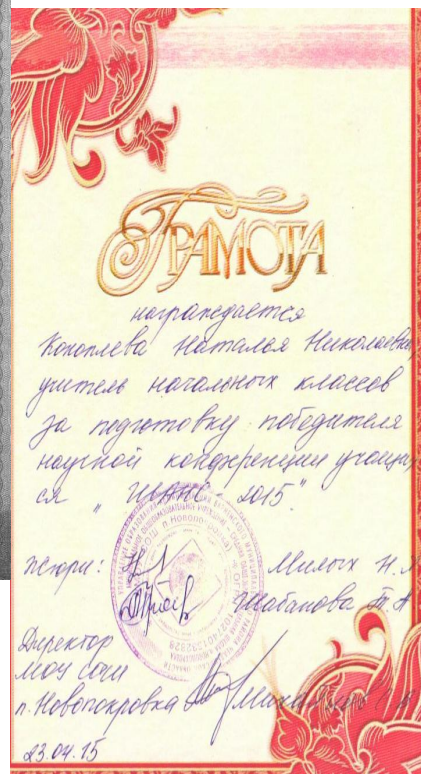 Грамота
награждается
Коноплева Наталья Николаевна,
учитель начальных классов
за подготовку победителя
научной конференции учащих
ся " - 2015".
жюри: Милых Н.
Шабанова Т. А
Директор
МОУ СОШ
п. Новопокровка
23.04.15